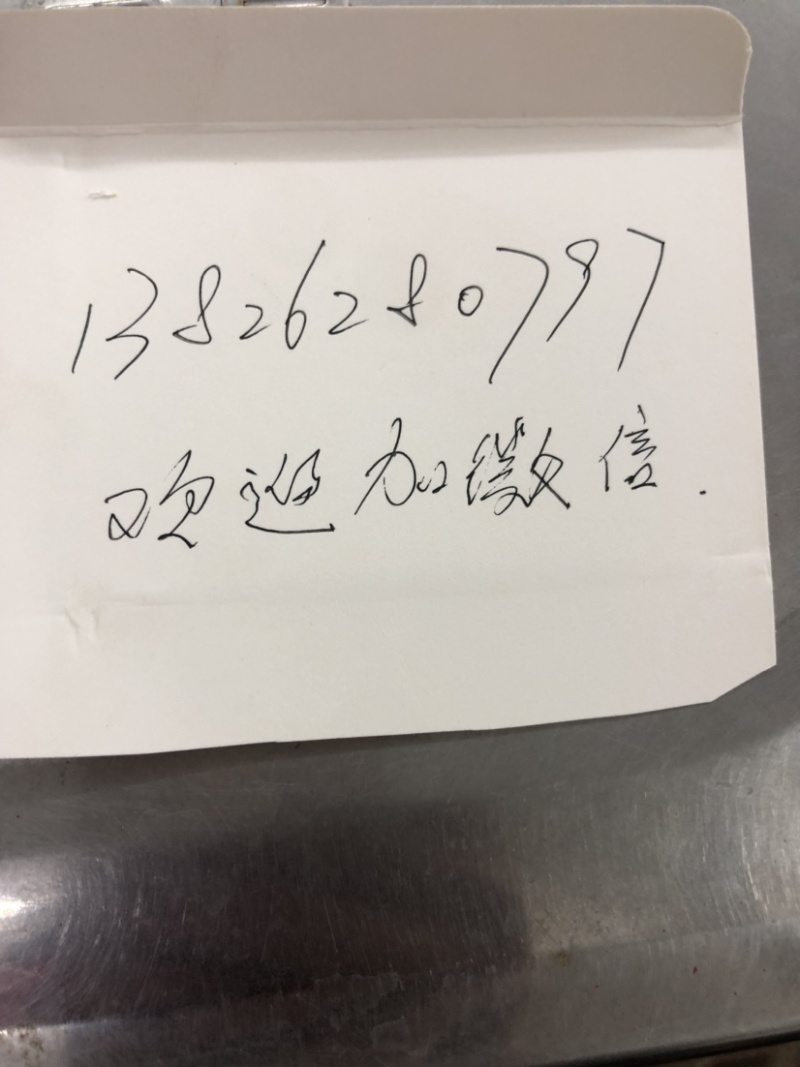 13826280797
欢迎加微信.